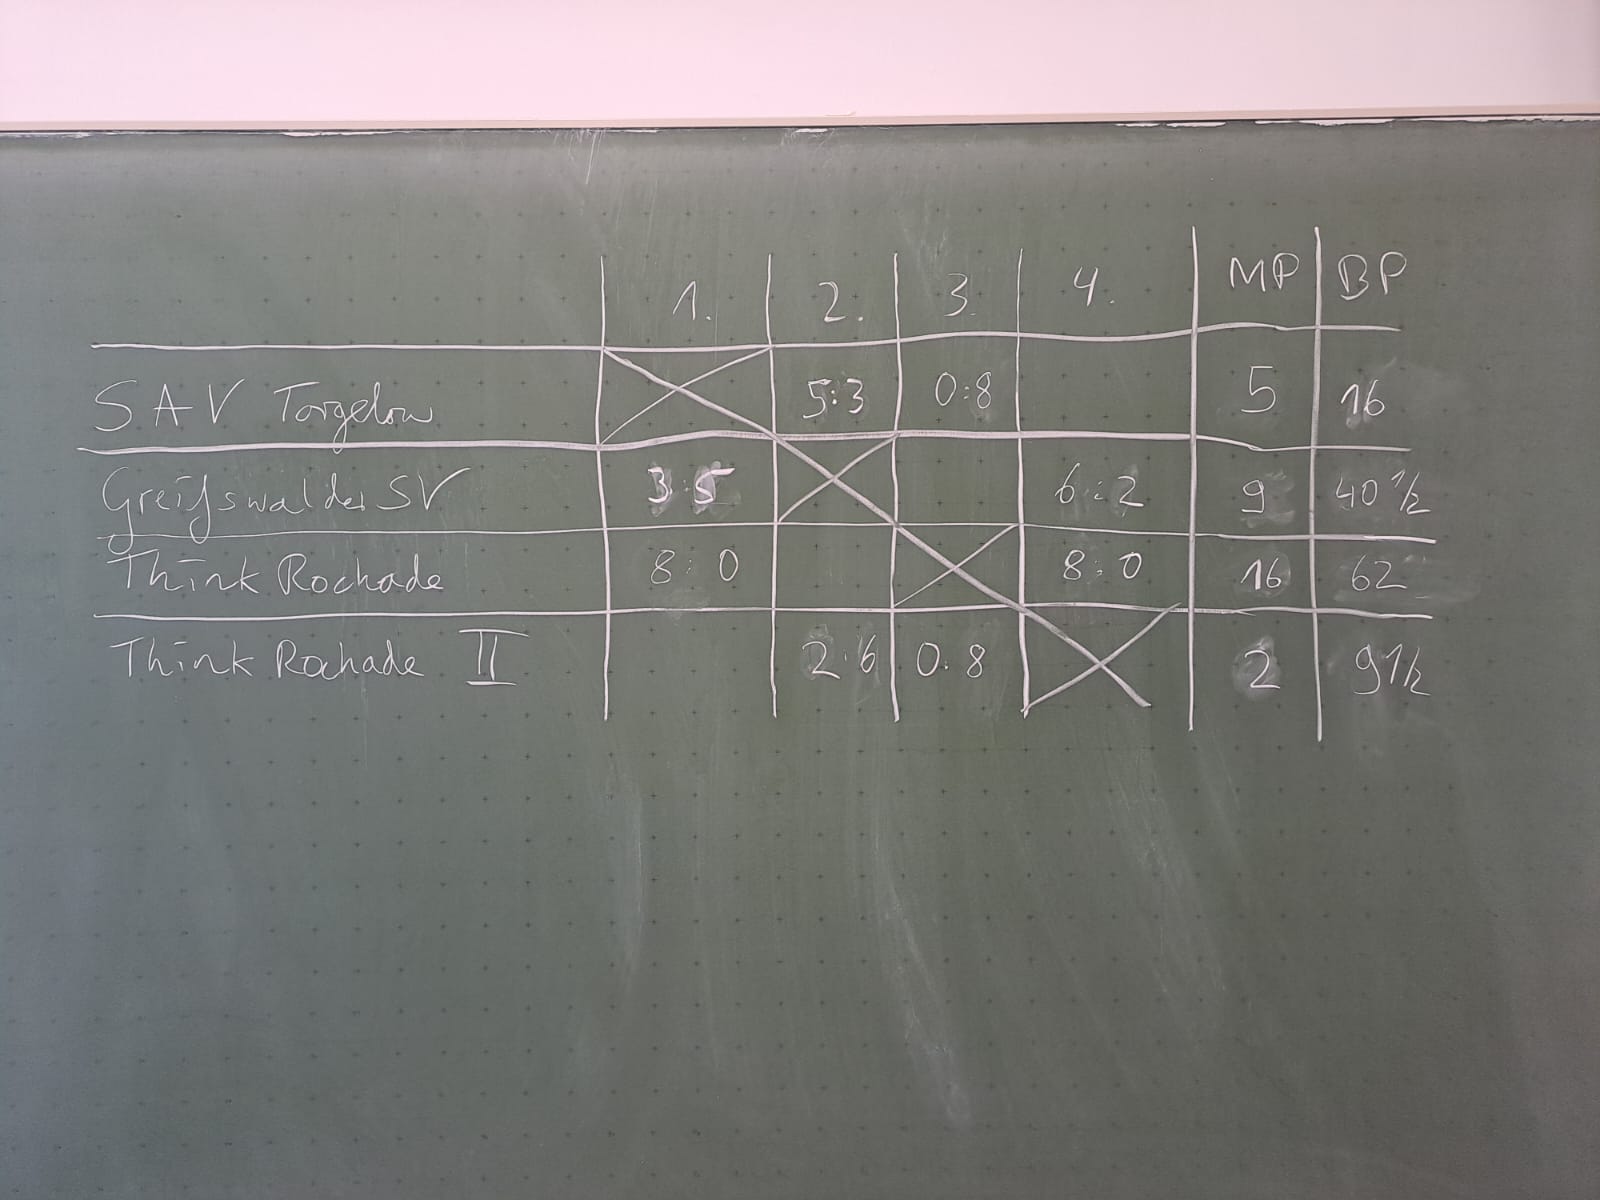 1. 2. 3. 4. MP BP
SAV Torgelow 5:3 0:8 5 16
Greifswalder SV 3:5 6:2 9 40 1/2
Think Rochade 8:0 8:0 16 62
Think Rochade II 2:6 0:8 2 9 1/2